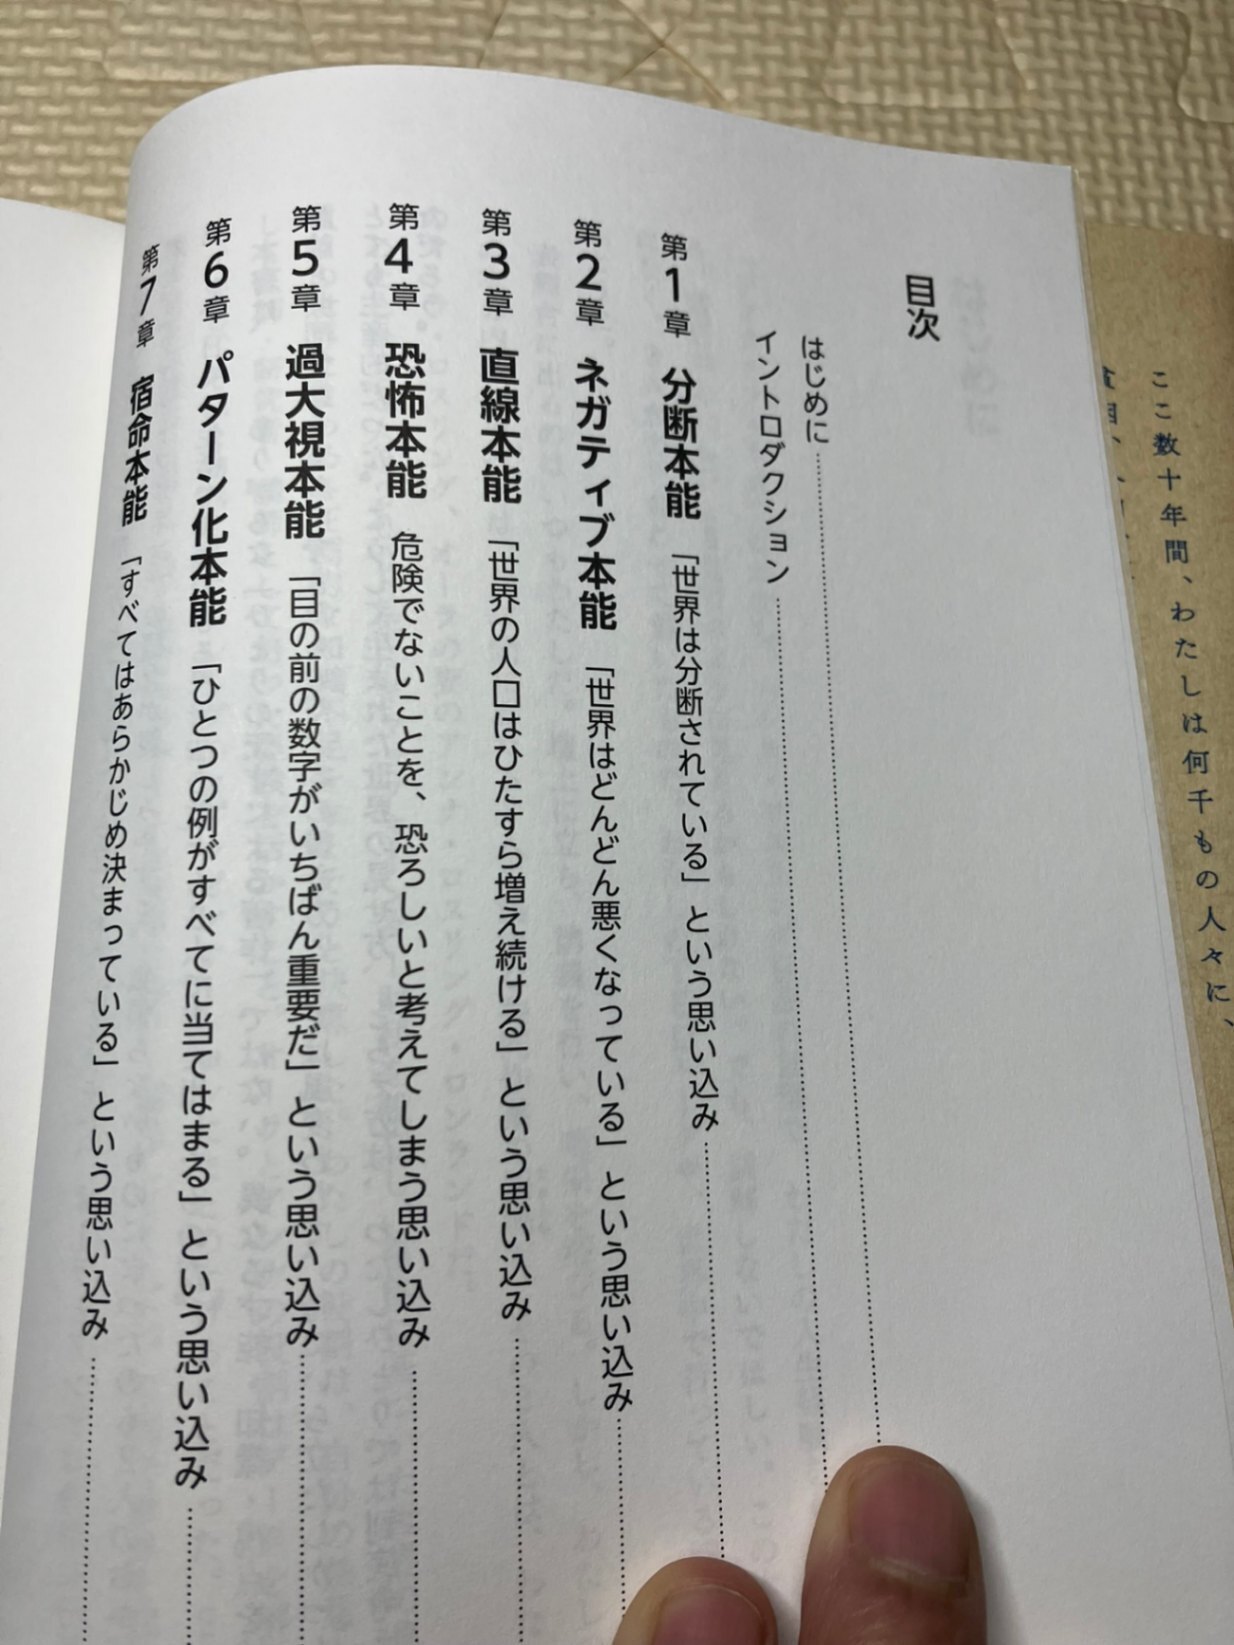 ここ数十年間、わたしは何千もの人々に、
目次
はじめに
イントロダクション
第1章 分断本能 「世界は分断されている」という思い込み
第2章 ネガティブ本能 「世界はどんどん悪くなっている」という思い込み
第3章 直線本能 「世界の人口はひたすら増え続ける」という思い込み
第4章 恐怖本能 危険でないことを、恐ろしいと考えてしまう思い込み
第5章 過大視本能 「目の前の数字がいちばん重要だ」という思い込み
第6章 パターン化本能 「ひとつの例がすべてに当てはまる」という思い込み
第7章 宿命本能 「すべてはあらかじめ決まっている」という思い込み